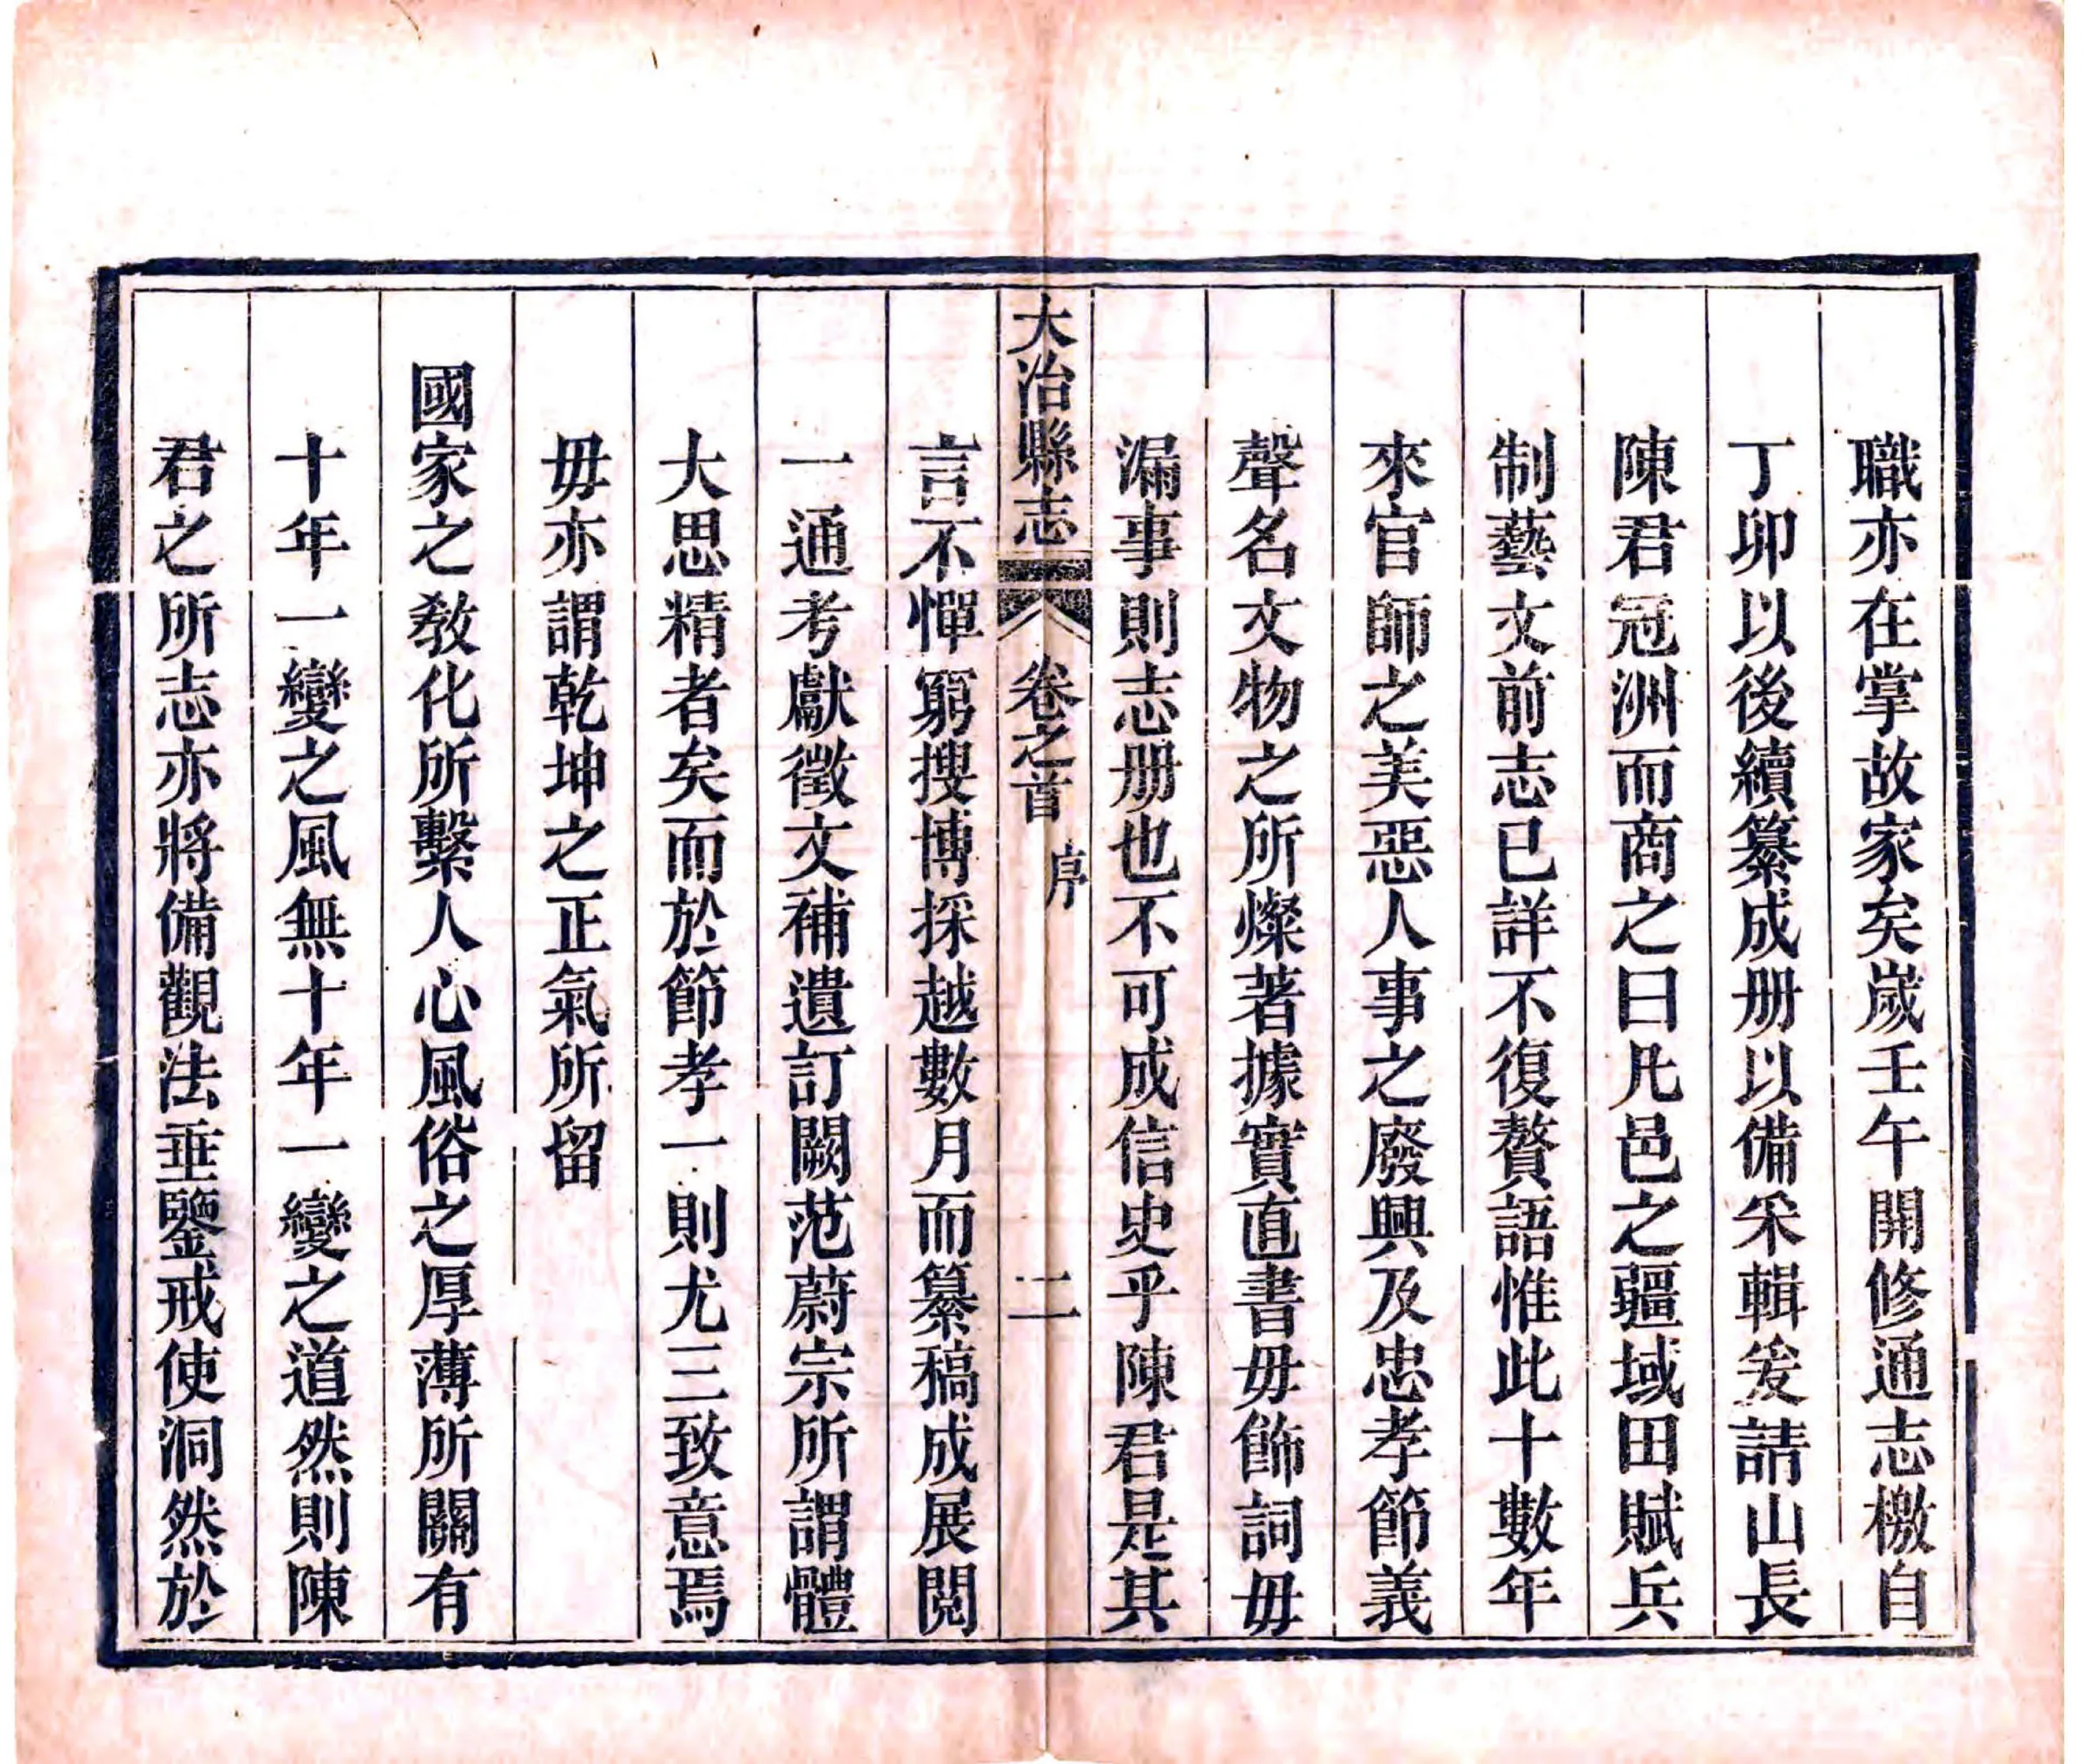 職亦在掌故家矣歲壬午開修通志檄自
丁卯以後續纂成册以備采輯爰請山長
陳君冠洲而商之曰凡邑之疆域田賦兵
制藝文前志已詳不復贅語惟此十數年
來官師之美惡人事之廢興及忠孝節義
聲名文物之所燦著據實直書毋飾詞毋
漏事則志册也不可成信史乎陳君是其
大冶縣志 卷之首 序 二
言不憚窮搜博採越數月而纂稿成展閱
一通考獻徵文補遺訂闕范蔚宗所謂體
大思精者矣而於節孝一則尤三致意焉
毋亦謂乾坤之正氣所留
國家之教化所繫人心風俗之厚薄所關有
十年一變之風無十年一變之道然則陳
君之所志亦將備觀法垂鑒戒使洞然於